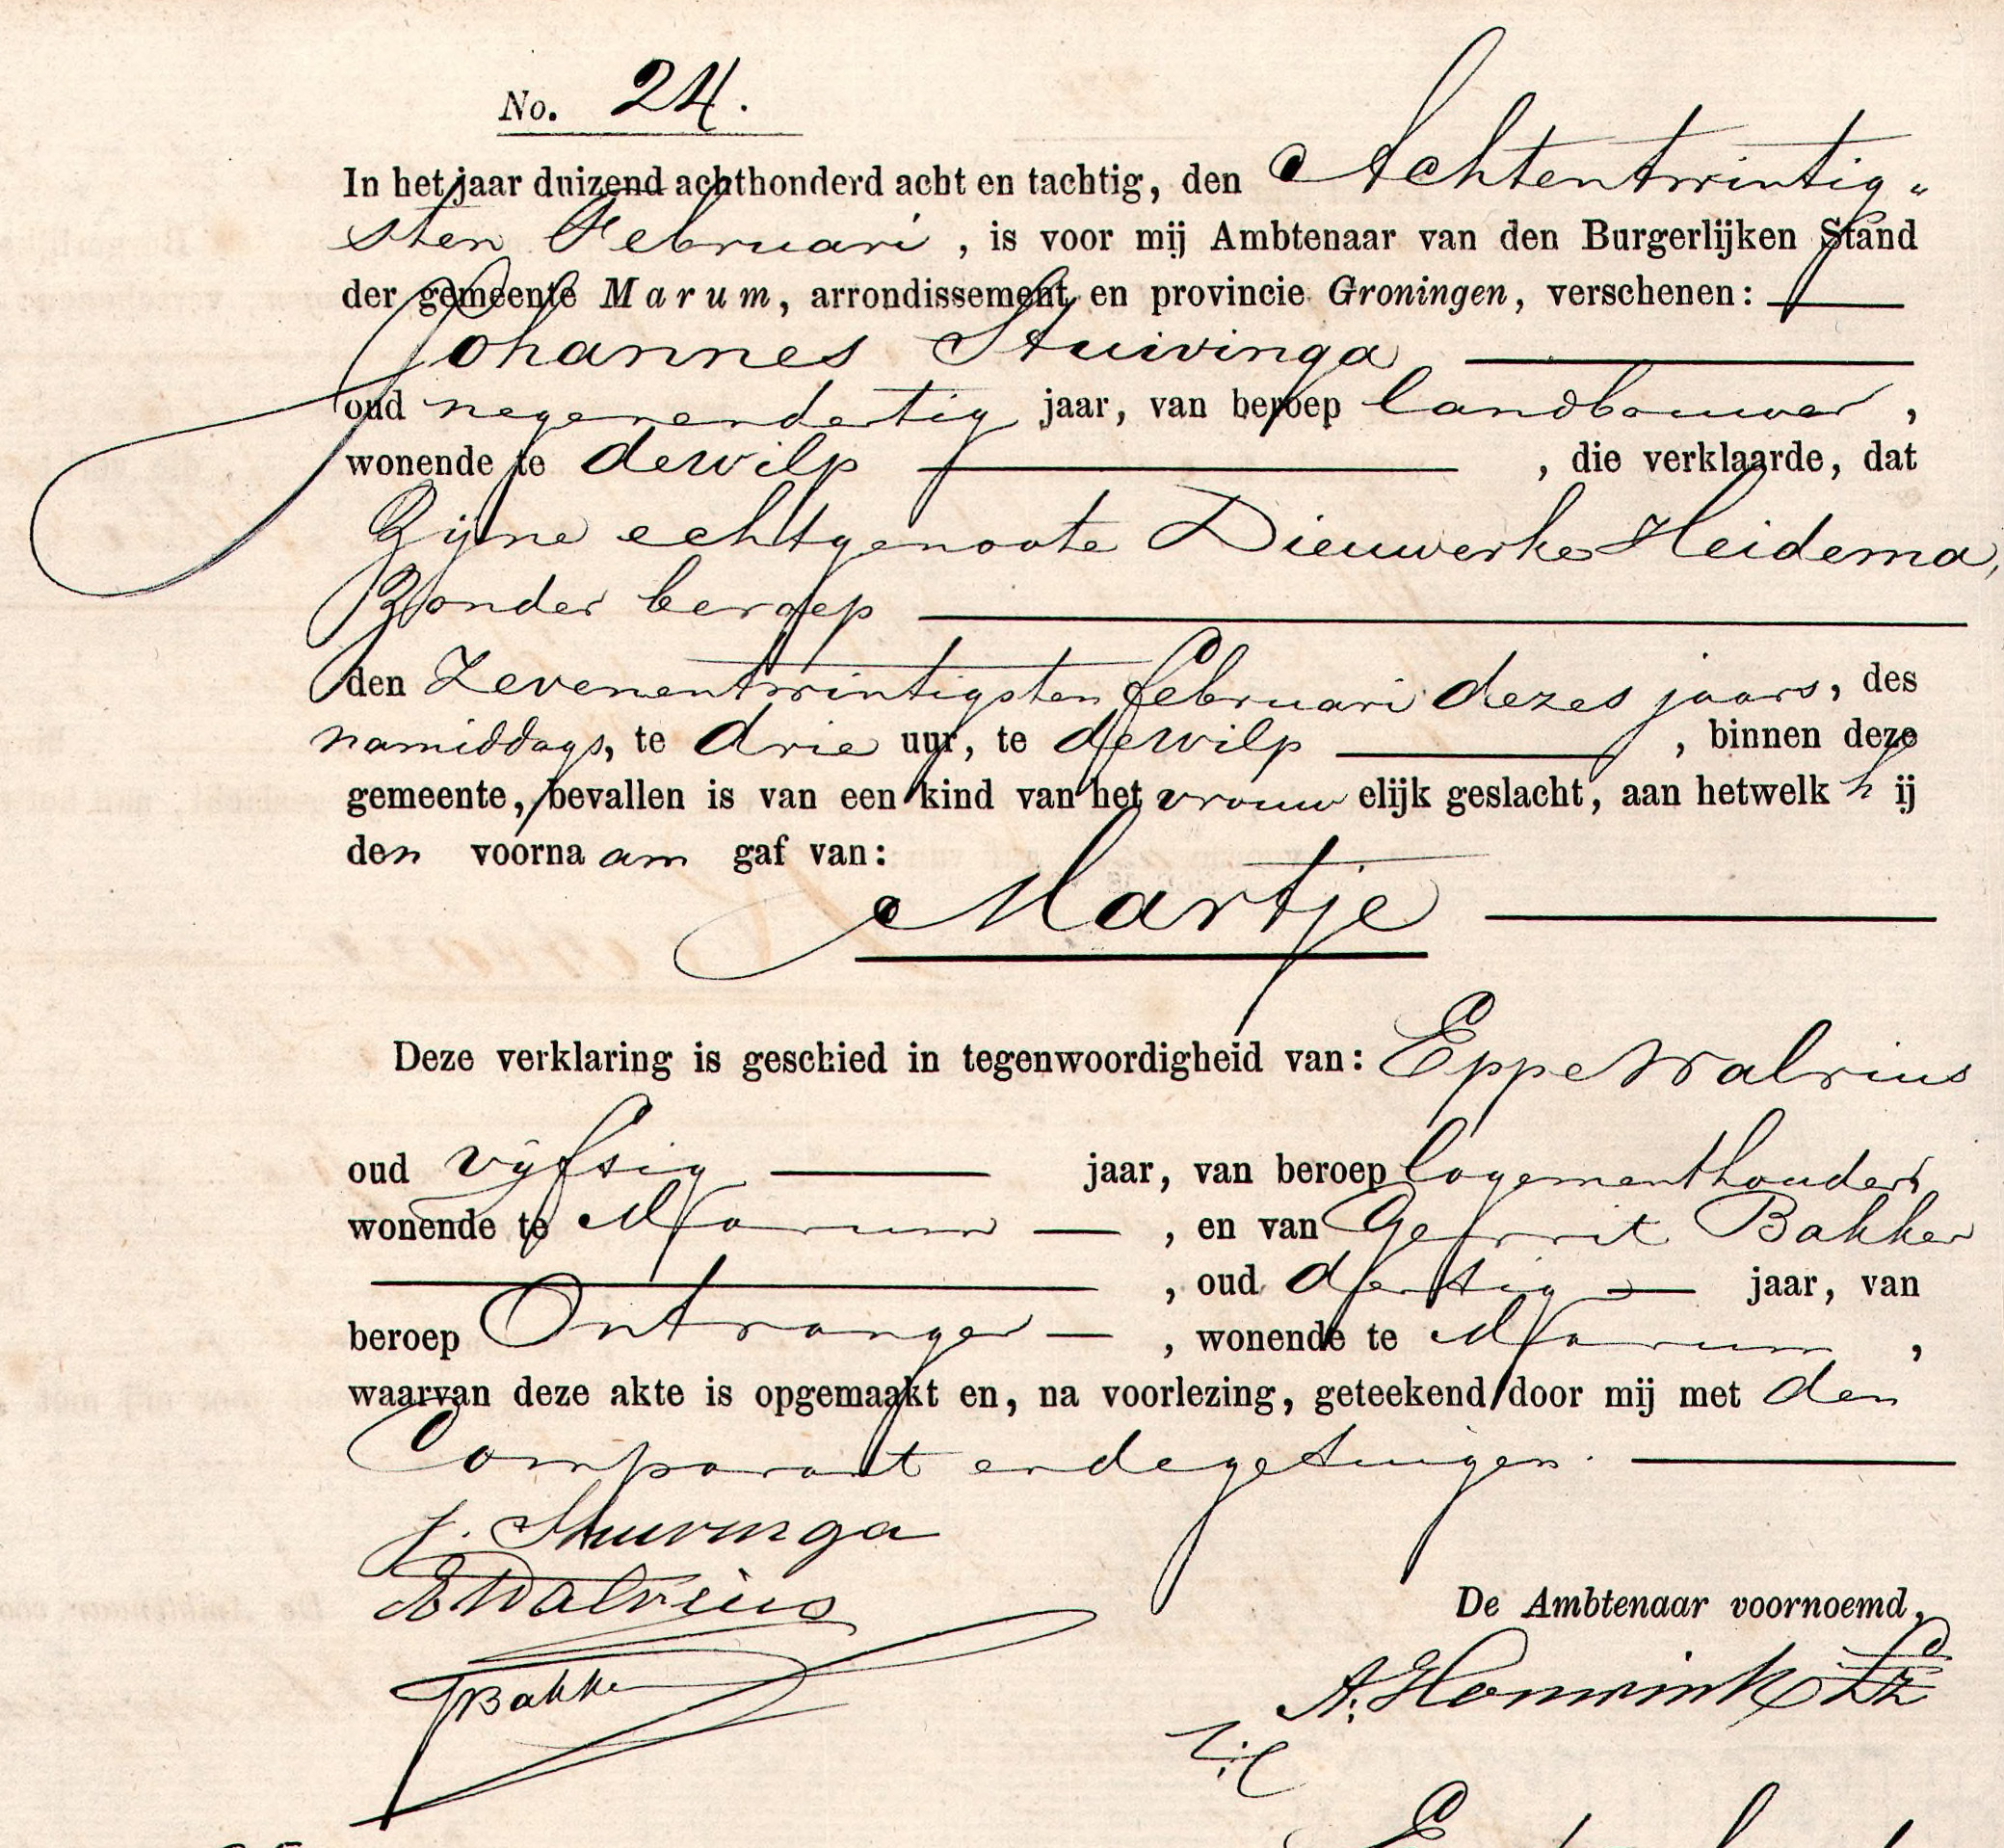 No. 24.
In het jaar duizend achthonderd acht en tachtig, den Achtentwintig„
sten Februari, is voor mij Ambtenaar van den Burgerlijken Stand
der gemeente Marum, arrondissement en provincie Groningen, verschenen:
Johannes Stuivinga
oud negenendertig jaar, van beroep landbouwer,
wonende te dewilp, die verklaarde, dat
Zijne echtgenoote Dieuwerke Heidema,
Zonder beroep
den Zevenentwintigsten februari dezes jaars, des
namiddags, te drie uur, te dewilp, binnen deze
gemeente, bevallen is van een kind van het vrouwelijk geslacht, aan hetwelk hij
den voornaam gaf van:
Martje
Deze verklaring is geschied in tegenwoordigheid van: Eppe Walrius
oud vijftig jaar, van beroep logementhouder,
wonende te Marum, en van Gerrit Bakker
, oud dertig jaar, van
beroep Ontvanger, wonende te Marum,
waarvan deze akte is opgemaakt en, na voorlezing, geteekend door mij met den
Comparant en de getuigen.
J. Stuivinga
EWalrius
De Ambtenaar voornoemd,
GBakker
A. Honwink